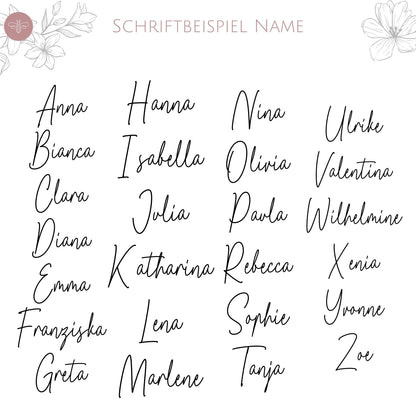 SCHRIFTBEISPIEL NAME
Anna
Bianca
Clara
Diana
Emma
Franziska
Greta
Hanna
Isabella
Julia
Katharina
Lena
Marlene
Nina
Olivia
Paula
Rebecca
Sophie
Tanja
Ulrike
Valentina
Wilhelmine
Xenia
Yvonne
Zoe